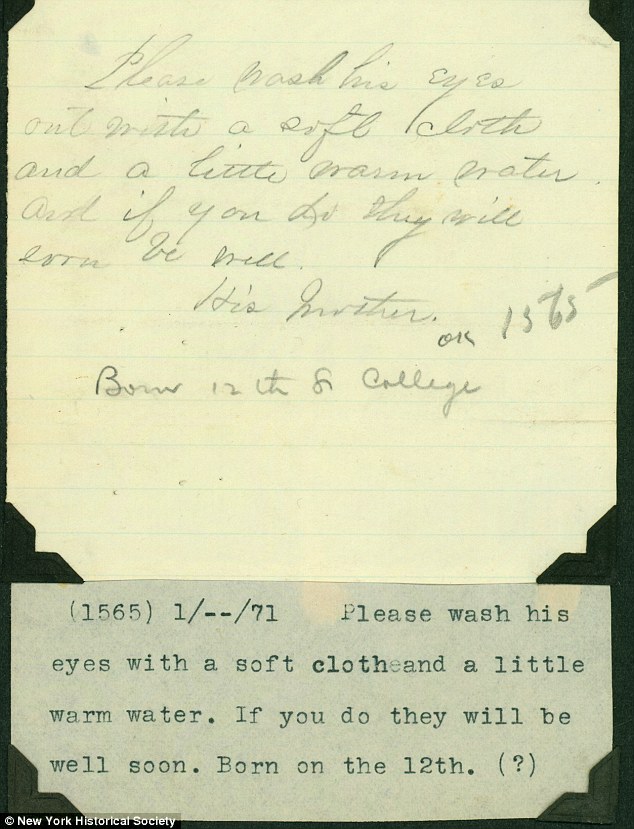 Please wash his eyes
out with a soft cloth
and a little warm water.
And if you do they will
soon be well.
His Mother.
OK 1565
Born 12th & College
(1565) 1/--/71 Please wash his
eyes with a soft cloth and a little
warm water. If you do they will be
well soon. Born on the 12th. (?)
© New York Historical Society